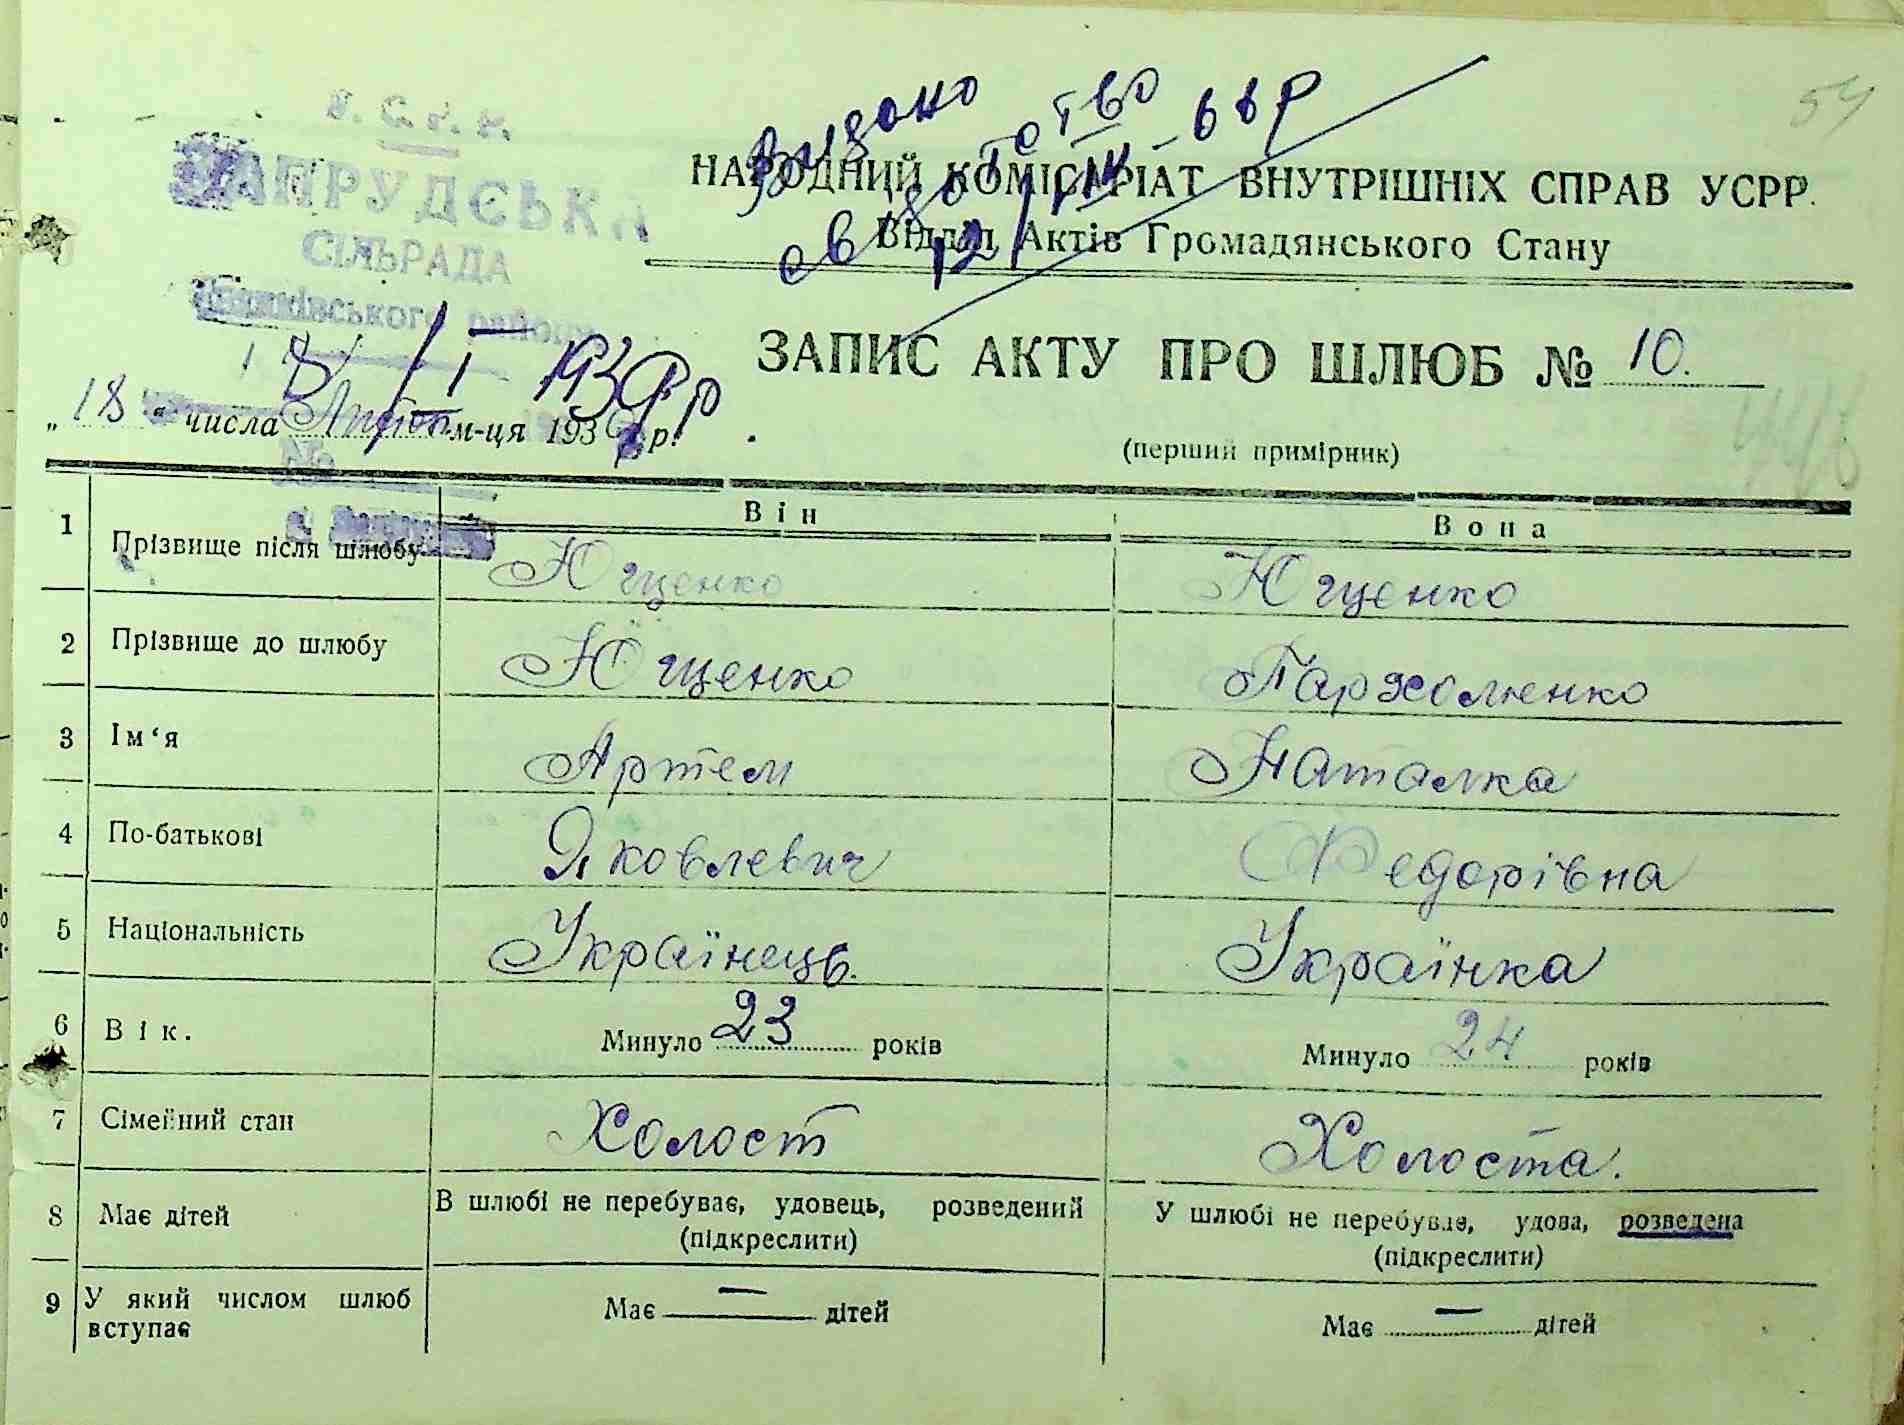 54
Видано
свідотство
12/IV - 66 р
У. С. Р. Р.
ЗАПРУДЄСЬКА
СІЛЬРАДА
району
НАРОДНИЙ КОМІСАРІАТ ВНУТРІШНІХ СПРАВ УСРР.
Відділ Актів Громадянського Стану
ЗАПИС АКТУ ПРО ШЛЮБ № 10.
/I 1939 р
„18“ числа м-ця 193 р.
(перший примірник)
Він Вона
1 Прізвище після шлюбу Ющенко Ющенко
2 Прізвище до шлюбу Ющенко Пархоменко
3 Ім‘я Артем Наталка
4 По-батькові Яковлевич Федорівна
5 Національність Українець. Українка
6 Вік. Минуло 23 років Минуло 24 років
7 Сімейний стан Холост Холоста.
8 Має дітей В шлюбі не перебуває, удовець, розведений (підкреслити) У шлюбі не перебуває, удова, розведена (підкреслити)
9 У який числом шлюб вступає Має — дітей Має — дітей